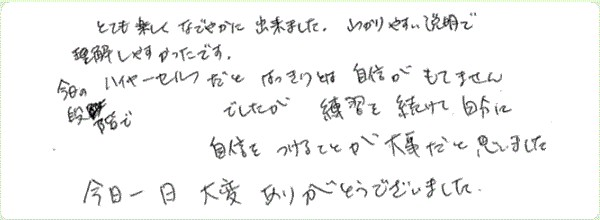 とても楽しくなごやかに出来ました。わかりやすい説明で
理解しやすかったです。
今日の ハイヤーセルフだとはっきりとは自信がもてません
段階で でしたが 練習を続けて自分に
自信をつけることが大事だと思いました
今日一日 大変ありがとうございました.